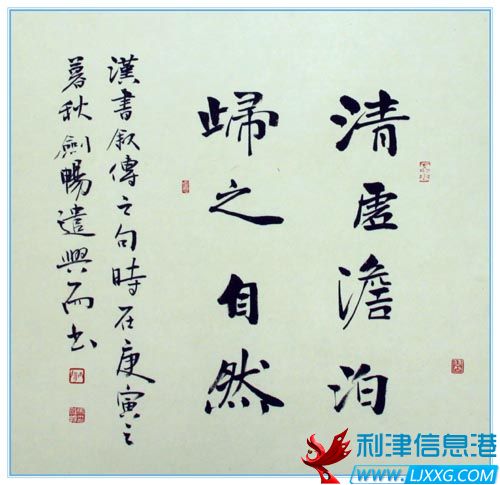 清虚澹泊
歸之自然
漢書叙傳之句時在庚寅之
暮秋劍暢遣興而书
利津信息港
WWW.LJXXG.COM